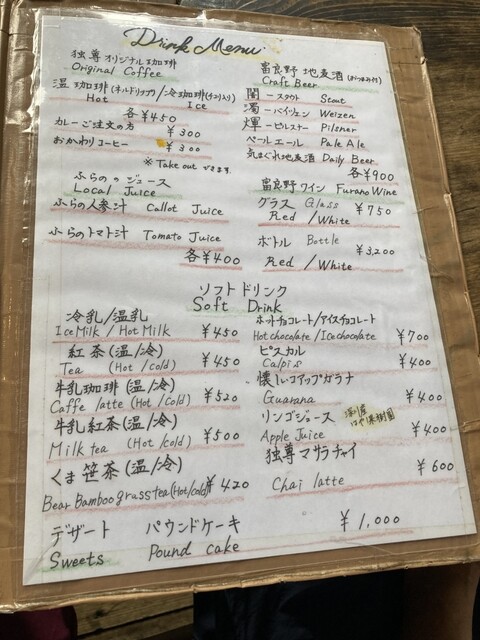 Drink Menu
独尊オリジナル珈琲
Original Coffee
温珈琲(ネルドリップ)/冷珈琲(チコリ入り)
Hot Ice
各¥450
カレーご注文の方 ¥300
おかわりコーヒー ¥300
※Take outできます。
ふらののジュース
Local Juice
ふらの人参汁 Callot Juice
ふらのトマト汁 Tomato Juice
各¥400
富良野地麦酒(おつまみ付)
Craft Beer
闇ースタウト Stout
濁ーバイツェン Weizen
輝ーピルスナー Pilsner
ペールエール Pale Ale
気まぐれ地麦酒 Daily Beer
各¥900
富良野ワイン Furano Wine
グラス Glass ¥750
Red / White
ボトル Bottle ¥3,200
Red / White
ソフトドリンク
Soft Drink
冷乳/温乳
Ice Milk / Hot Milk ¥450
紅茶(温/冷)
Tea (Hot / cold) ¥450
牛乳珈琲(温/冷)
Caffe latte (Hot / cold) ¥520
牛乳紅茶(温/冷)
Milk tea (Hot / cold) ¥500
くま笹茶(温/冷)
Bear Bamboo grass tea (Hot/cold) ¥420
ホットチョコレート/アイスチョコレート
Hot chocolate / Ice chocolate ¥700
ピスカル
Calpis ¥400
懐しいコアップガラナ
Guarana ¥400
リンゴジュース
Apple Juice ¥400
独尊マサラチャイ
Chai latte ¥600
デザート パウンドケーキ ¥1,000
Sweets Pound cake